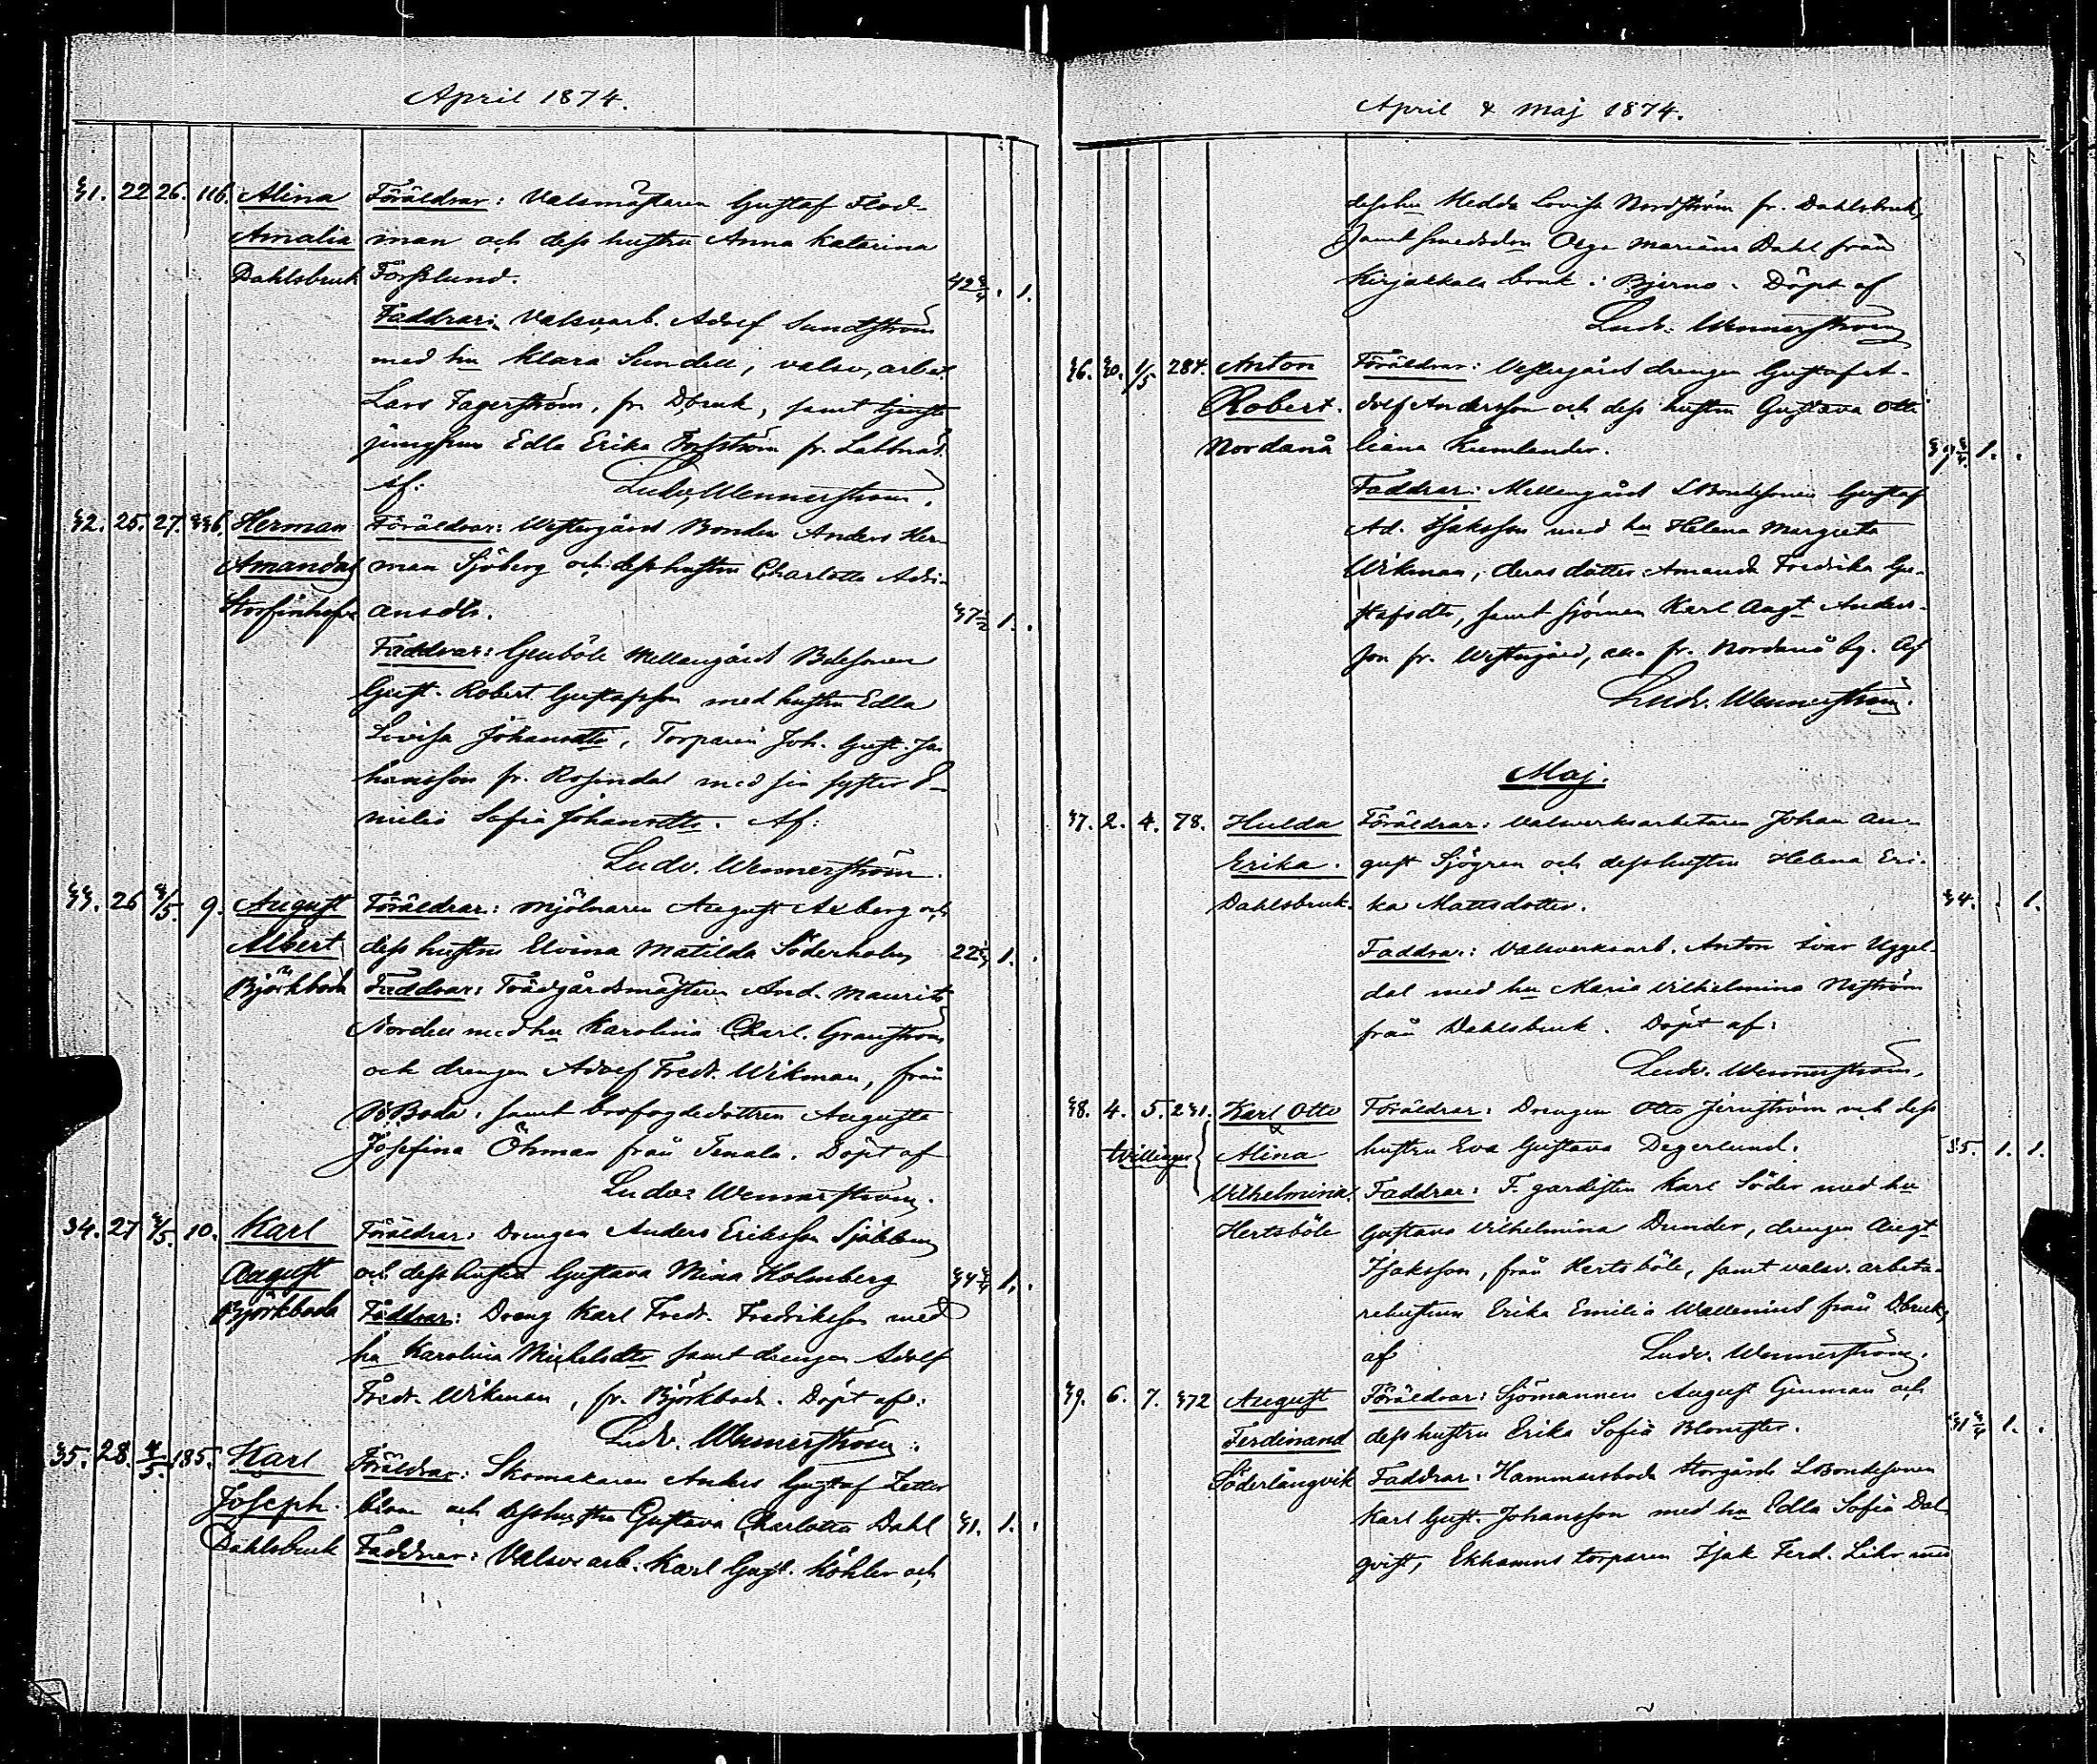 April 1874.
31. 22 26. 116. Alina Föräldrar: Valsmästaren Gustaf Flod-
Amalia man och dess hustru Anna Katarina
Dahlsbruk Forsslund. 42 3/4. 1.
Faddrar: Valsv.arb. Adolf Sundström
med hu Klara Sundell, valsv. arbet.
Lars Fagerström, fr. Dbruk, samt tjenste
jungfrun Edla Erika Forsström fr. Labbnäs.
af: Ludv. Wennerström.
32. 25. 27. 336. Herman Föräldrar: Westergårds Bonden Anders Her-
Amandus man Sjöberg och dess hustru Charlotta Adri-
ansdtr. 37 1/2 1.
Faddrar: Genböle Mellangårds Bdesonen
Gust. Robert Gustafsson med hustru Edla
Lovisa Johansdtr, Torparen Joh. Gust. Jo
hansson fr. Rosendal med sin syster E-
milia Sofia Johansdtr. Af:
Ludv. Wennerström.
33. 26 3/5. 9. August Föräldrar: Mjölnaren August Axberg och
Albert dess hustru Elvina Matilda Söderholm 22 1.
Björkboda Faddrar: Trädgårdsmästaren And. Maurits
Nordell med hu Karolina Charl. Granström
och drengen Adolf Fredr. Wikman, från
Boda, samt brofogdedottren Augusta
Josefina Öhman från Tenala. Döpt af
Ludv. Wennerström.
34. 27 3/5. 10. Karl Föräldrar: Drengen Anders Eriksson Sjöblom
August och dess hustru Gustava Mina Holmberg 34 3/4 1.
Björkboda Faddrar: Dreng Karl Fredr. Fredriksson med
hu Karolina Mickelsdtr samt drengen Adolf
Fredr. Wikman, fr. Björkboda. Döpt af:
Ludv. Wennerström.
35. 28. 4/5. 185. Karl Föräldrar: Skomakaren Anders Gustaf Zetter
Joseph. blom och dess hustru Gustava Charlotta Dahl 31. 1.
Dahlsbruk Faddrar: Valsv arb. Karl Gust. Köhler och
April & Maj 1874.
dess hu Hedda Lovisa Nordström fr. Dahlsbruk,
samt Olga Mariana Dahl från
Kirjakkala bruk i Bjerno. Döpt af
Ludv. Wennerström
36. 30. 1/5 284. Anton Föräldrar: Westergårds drengen Gustaf A-
Robert. dolf Andersson och dess hustru Gustava Otti
Nordanå liana Kumlander. 39 3/4. 1.
Faddrar: Mellangårds LBondesonen Gustaf
Ad. Isaksson med hu Helena Margreta
Wikman, deras dotter Amanda Fredrika Gu-
stafsdtr, samt sjöman Karl Augt Anders-
son fr. Westergård, alla fr. Nordanå by. Af
Ludv. Wennerström.
Maj.
37. 2. 4. 78. Hulda Föräldrar: Valsverksarbetaren Johan Au-
Erika. gust Sjögren och dess hustru Helena Eri-
Dahlsbruk. ka Mattsdotter. 34. 1.
Faddrar: Valsverksarb. Anton Ivar Uggel-
dal med hu Maria Vilhelmina Nyström
från Dahlsbruk. Döpt af:
Ludv. Wennerström.
38. 4. 5. 231. Karl Otto Föräldrar: Drengen Otto Jernström och dess
tvillingar & Alina hustru Eva Gustava Degerlund. 35. 1. 1.
Vilhelmina. Faddrar: F. gardisten Karl Söder med hu
Hertsböle Gustava Vilhelmina Dunder, drengen Augt
Isaksson, från Hertsböle, samt valsv. arbeta-
rehustrun Erika Emilia Wallenius från Dbruk,
af Ludv. Wennerström.
39. 6. 7. 372 August Föräldrar: Sjömannen August Ginman och
Ferdinand dess hustru Erika Sofia Blomster. 31 3/4 1.
Söderlångvik Faddrar: Hammarsboda Storgårds LBondesonen
Karl Gust. Johansson med hu Edla Sofia Dal
qvist, Ekhamns torparen Isak Ferd. Lihr med